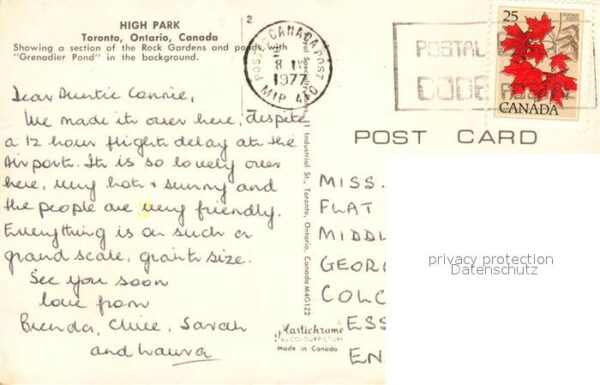 HIGH PARK
Toronto, Ontario, Canada
Showing a section of the Rock Gardens and ponds, with
"Grenadier Pond" in the background.
2
CANADA POST
POSTES
8
1977
M1P 4T0
POSTAL
CODE
25
CANADA
POST CARD
Dear Auntie Connie,
We made it over here, despite
a 12 hour flight delay at the
Airport. It is so lovely over
here, very hot + sunny and
the people are very friendly.
Everything is on such a
grand scale, giant size.
See you soon
love from
Brenda, Clive, Sarah
and Laura
Industrial St., Toronto, Ontario, Canada M4G1Z2
Plastichrome
by COLOURPICTURE
Made in Canada
MISS.
FLAT
MIDDL
GEORG
COLC
ESS
EN
privacy protection
Datenschutz